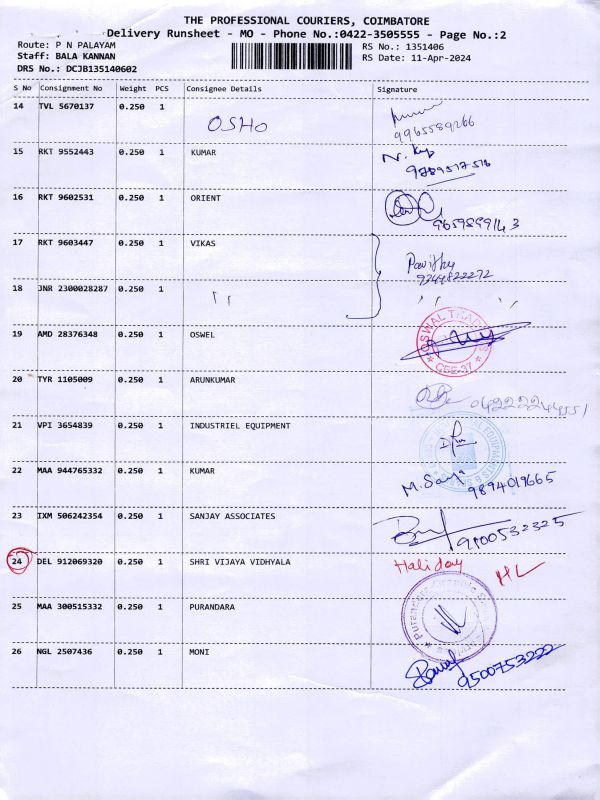 THE PROFESSIONAL COURIERS, COIMBATORE
Delivery Runsheet - MO - Phone No.:0422-3505555 - Page No.:2
Route: P N PALAYAM
RS No.: 1351406
Staff: BALA KANNAN
RS Date: 11-Apr-2024
DRS No.: DCJB135140602
S No Consignment No Weight PCS Consignee Details Signature
14 TVL 5670137 0.250 1 OSHO
9965589266
15 RKT 9552443 0.250 1 KUMAR
16 RKT 9602531 0.250 1 ORIENT
9659899143
17 RKT 9603447 0.250 1 VIKAS
18 JNR 2300028287 0.250 1 " "
19 AMD 28376348 0.250 1 OSWEL
20 TYR 1105009 0.250 1 ARUNKUMAR
21 VPI 3654839 0.250 1 INDUSTRIEL EQUIPMENT
22 MAA 944765332 0.250 1 KUMAR
9894019665
23 IXM 506242354 0.250 1 SANJAY ASSOCIATES
9100532325
24 DEL 912069320 0.250 1 SHRI VIJAYA VIDHYALA Haliday HL
25 MAA 300515332 0.250 1 PURANDARA
26 NGL 2507436 0.250 1 MONI
9500753222